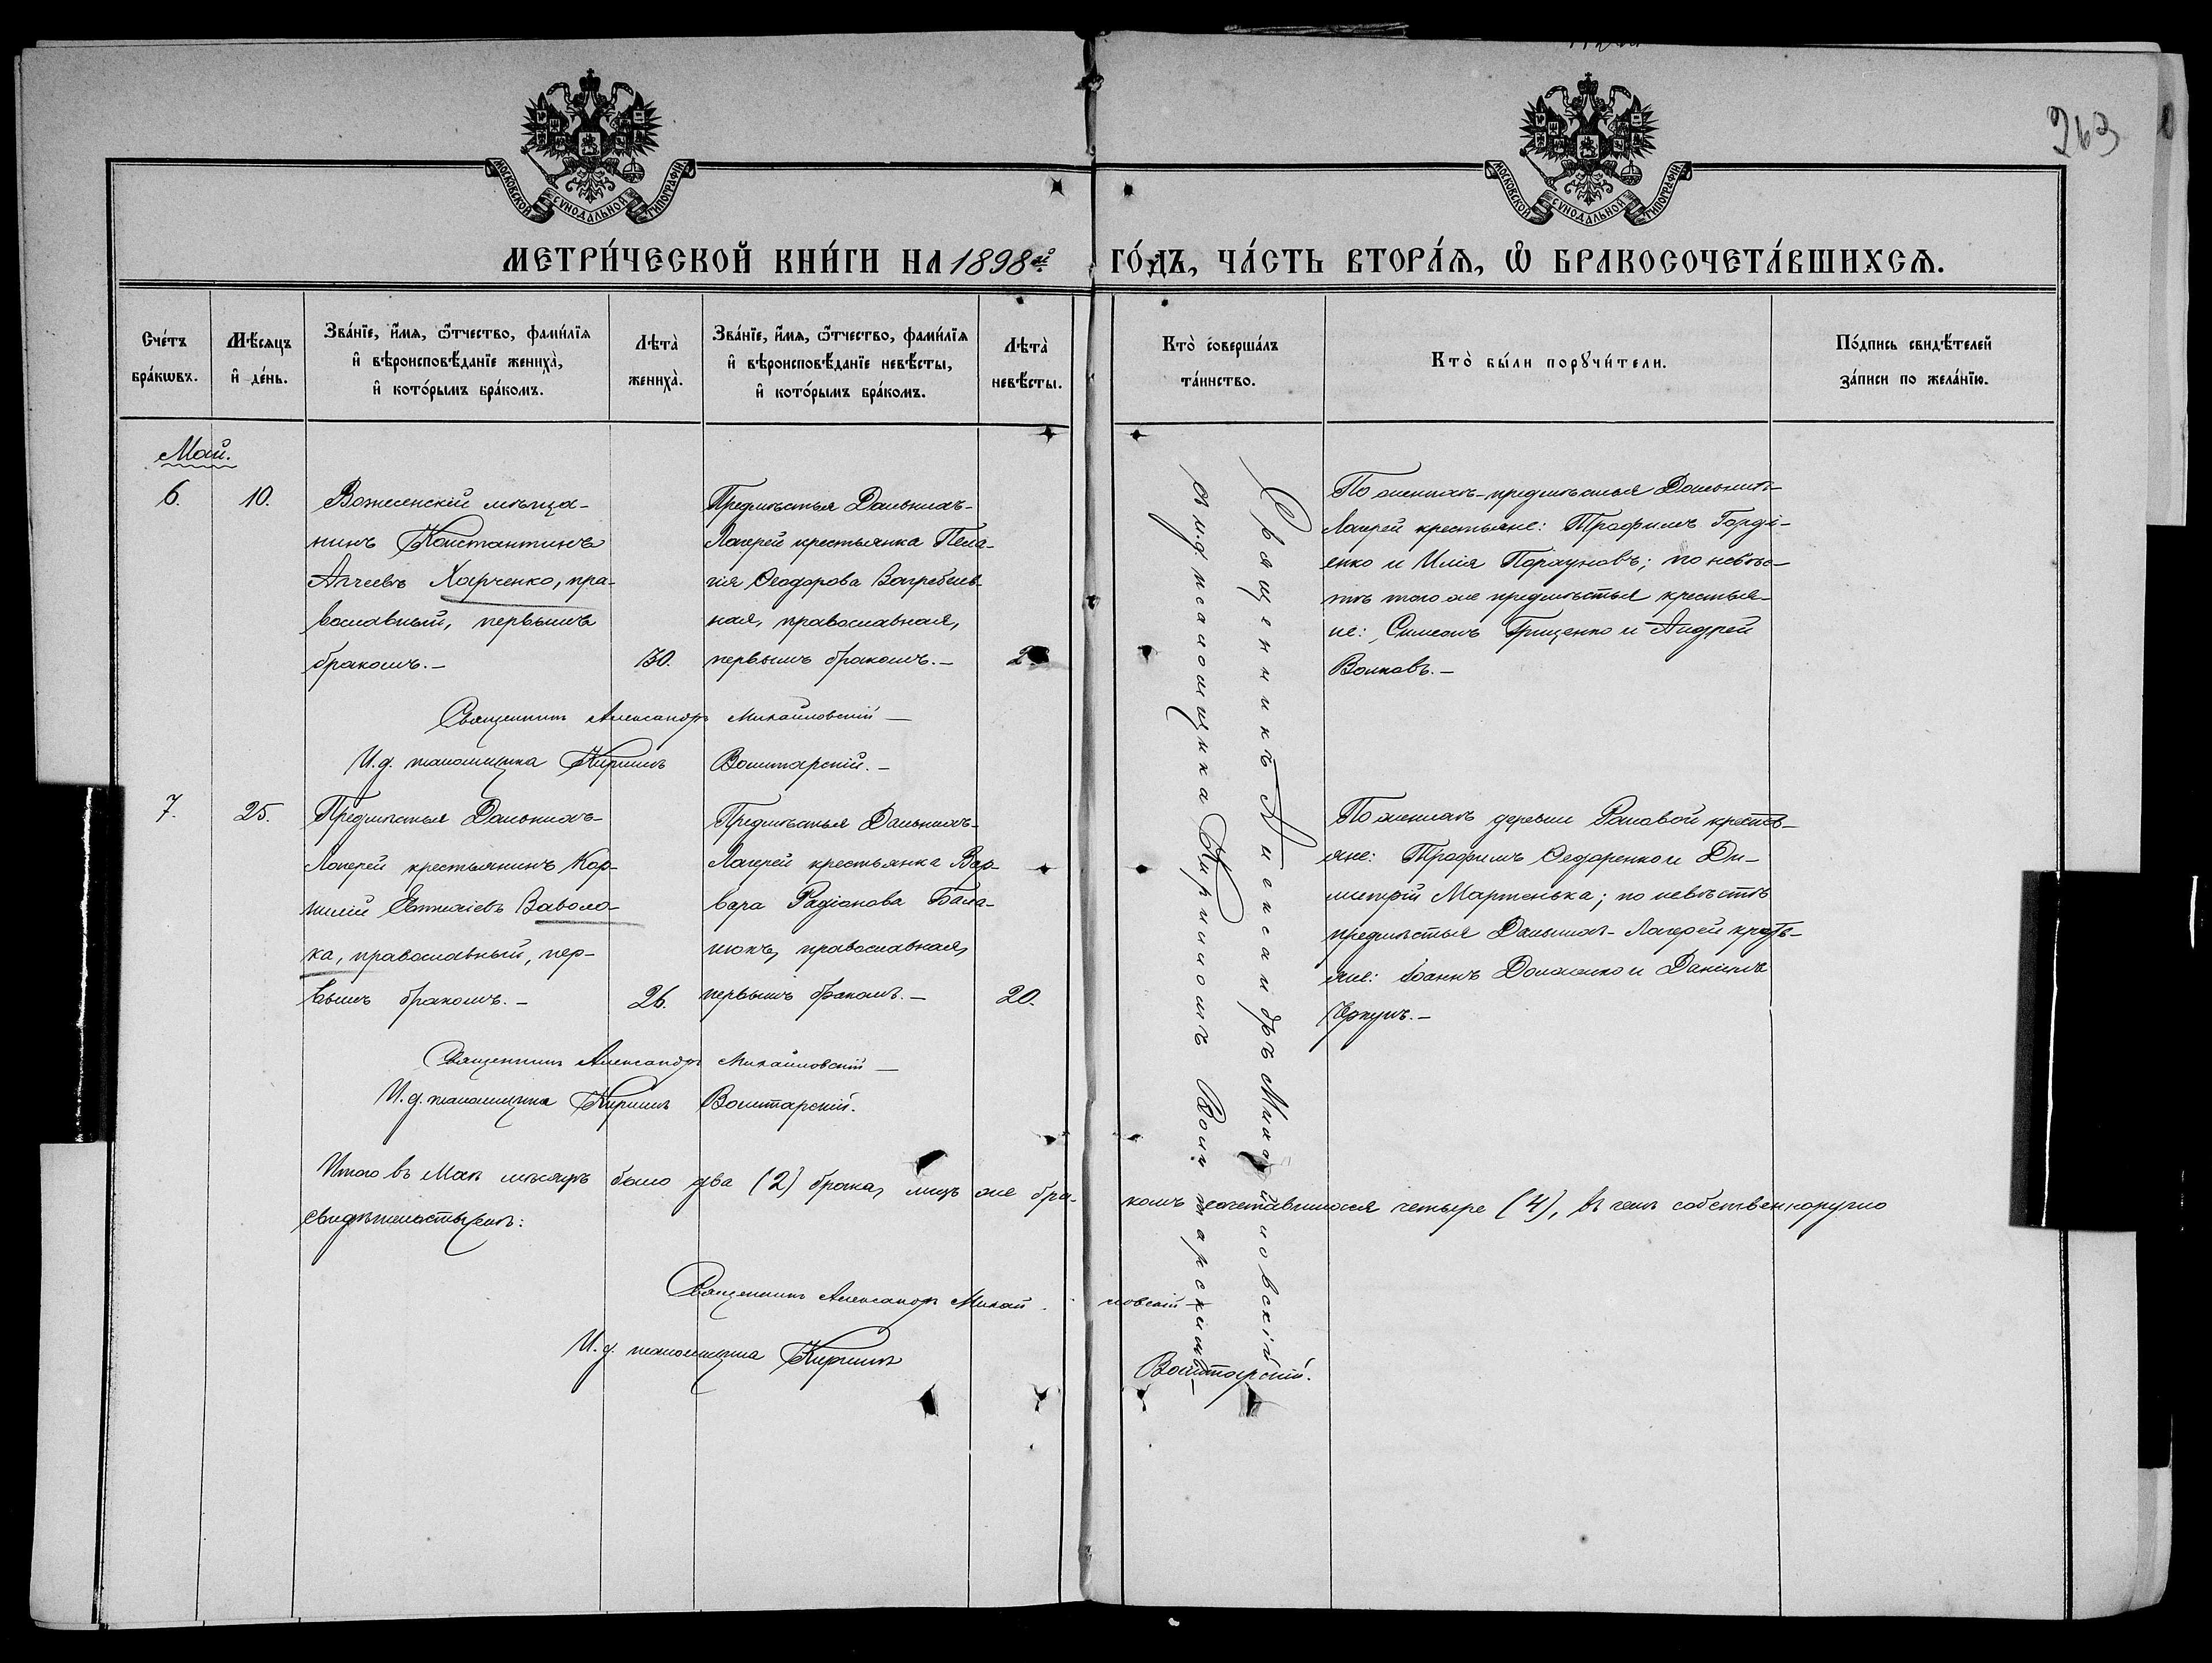 263
МОСКОВСКОЙ СѴНОДАЛЬНОЙ ТИПОГРАФІИ
МОСКОВСКОЙ СѴНОДАЛЬНОЙ ТИПОГРАФІИ
МЕТРИ́ЧЕСКОЙ КНИ́ГИ НА 1898й ГО́ДЪ, ЧА́СТЬ ВТОРА́Ѧ, Ѽ БРАКОСОЧЕТА́ВШИХСѦ.
Сче́тъ бра́кѡвъ.
Мѣ́сяцъ и҆ де́нь.
Зва́нїе, и҆́мя, ѻ҆́тчество, фами́лїя
и҆ вѣроисповѣ́данїе жениха̀,
и҆ кото́рымъ бра́комъ.
Лѣта̀ жениха̀.
Зва́нїе, и҆́мя, ѻ҆́тчество, фами́лїя
и҆ вѣроисповѣ́данїе невѣ́сты,
и҆ кото́рымъ бра́комъ.
Лѣта̀ невѣ́сты.
Кто̀ соверша́лъ та́инство.
Кто̀ бы́ли порꙋчи́тели.
По́дпись свидѣ́телей за́писи по жела́нїю.
Май.
6.
10.
Вознесенскій мѣща-
нинъ Константинъ
Харченко, пра-
вославный, первымъ
бракомъ.-
30.
Предмѣстья Дальнихъ-
Лагерей крестьянка Пела-
гія Ѳеодорова Загребель-
ная, православная,
первымъ бракомъ.-
По женихѣ-предмѣстья Дальнихъ-
Лагерей крестьяне: Трофимъ Горді-
енко и Илія Поргуновъ; по невѣс-
тѣ того же предмѣстья крестья-
не: Симеонъ Грищенко и Андрей
Волковъ.-
Священникъ Александръ Михайловскій
и и.д. псаломщика Кирилломъ Войтарскимъ
Священникъ Александръ Михайловскій
И.д. псаломщика Кириллъ Войтарскій.-
7.
25.
Предмѣстья Дальнихъ-
Лагерей крестьянинъ Кор-
нилій Евтихіевъ Заволо-
ка, православный, пер-
вымъ бракомъ.-
26.
Предмѣстья Дальнихъ-
Лагерей крестьянка Вар-
вара Радіонова Бала-
нюкъ, православная,
первымъ бракомъ.-
20.
По женихѣ деревни Раковой кресть-
яне: Трофимъ Ѳедоренко и Ди-
митрій Мартенька; по невѣстѣ
предмѣстья Дальнихъ-Лагерей кресть-
яне: Іоаннъ Доманко и Даніилъ
Священникъ Александръ Михайловскій
И.д. псаломщика Кириллъ Войтарскій.
Итого въ Маѣ мѣсяцѣ было два (2) брака, лицъ же бра-комъ сочетавшихся четыре (4), въ чемъ собственноручно
свидѣтельствуемъ:
Священникъ Александръ Михайловскій
И.д. псаломщика Кириллъ Войтарскій.